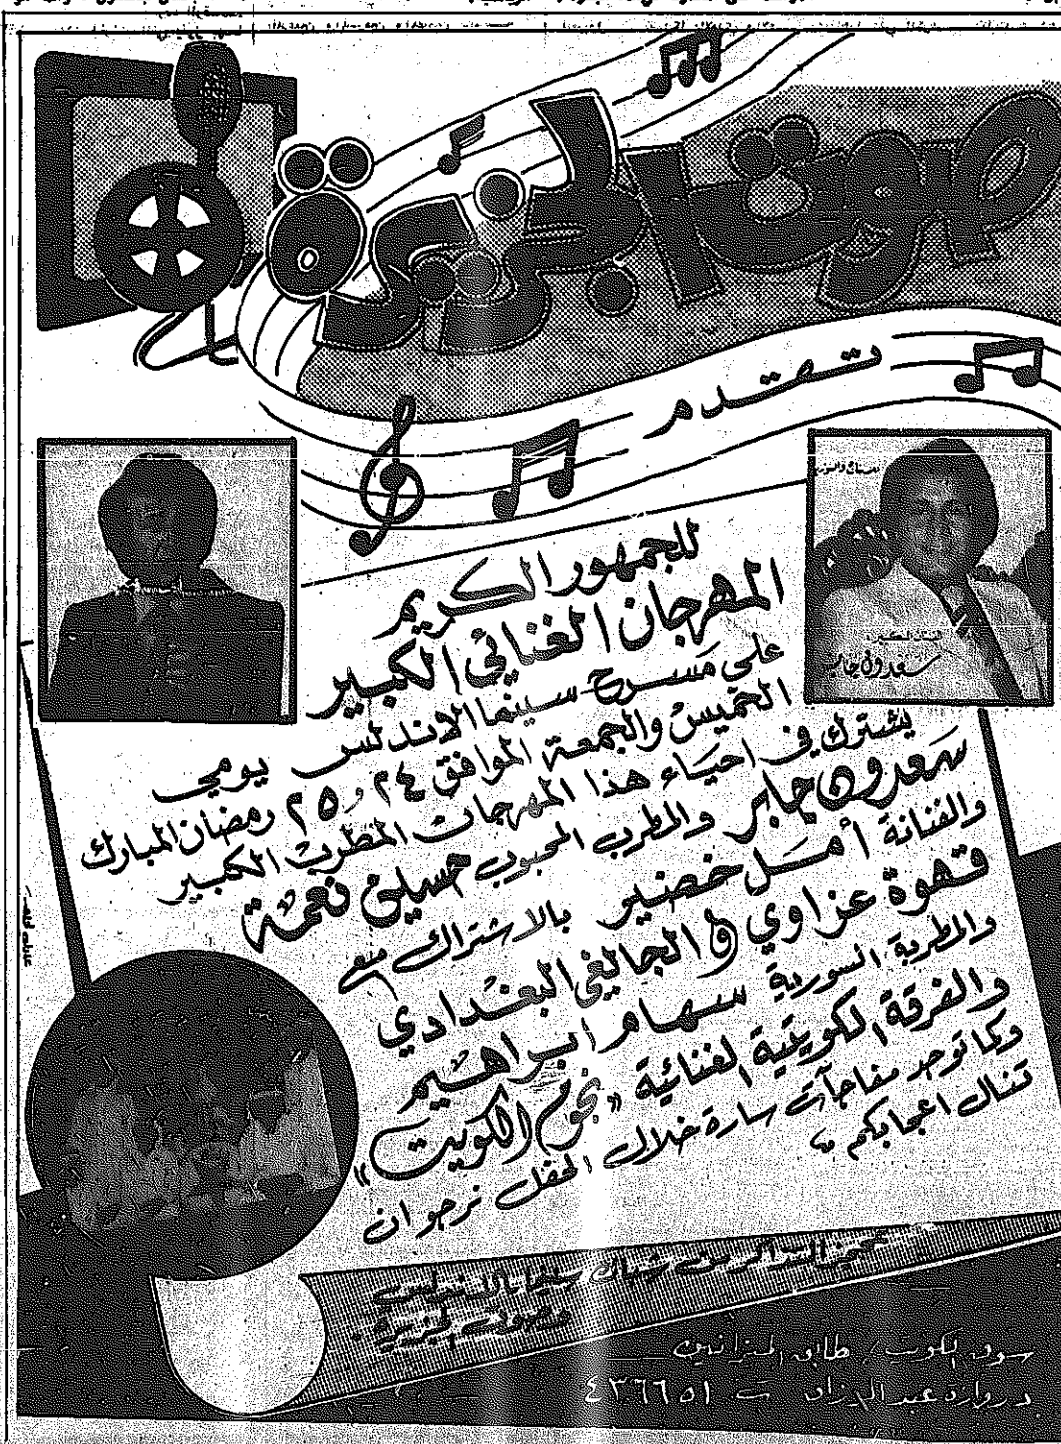 صوت الجزيرة
تقدم
سعدون جابر
للجمهور الكريم
المهرجان الغنائي الكبير
على مسرح سينما الاندلس يومي
الخميس والجمعة الموافق ٢٤ و ٢٥ رمضان المبارك
يشترك في احياء هذا المهرجان المطرب الكبير
سعدون جابر والمطرب المحبوب حسين نعمة
والفنانة أمل خضير بالاشتراك مع
قهوة عزاوي في الجالغي البغدادي
والمطربة السورية سهام ابراهيم
والفرقة الكويتية الغنائية «نجوم الكويت»
وكما توجد مفاجآت سارة خلال الحفل نرجو ان
تنال اعجابكم
تحجز التذاكر من شباك سينما الاندلس
وصوت الجزيرة
سوق الكويت طابق الميزانين
دروازة عبد الرزاق ت ٤٣٦٦٥١